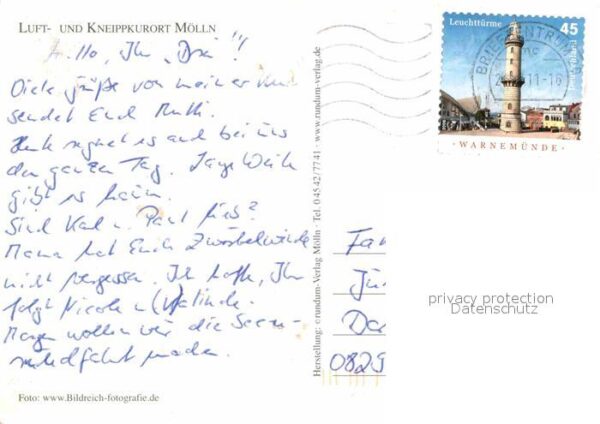 LUFT- UND KNEIPPKURORT MÖLLN
Hallo, Ihr "Drei"!
Viele Grüße von meiner Kur
sendet Euch Ruth.
Heute regnet es auch bei uns
den ganzen Tag. Lange Weile
gibt es kein.
Sind Karl u. Paul lieb?
Mama hat Euch
nicht vergessen. Ich hoffe, Ihr
folgt Nicole u.
Morgen wollen wir die Seen-
rundfahrt machen.
Foto: www.Bildreich-fotografie.de
Herstellung: ©rundum-Verlag Mölln · Tel. 04542/7741 · www.rundum-verlag.de
Leuchttürme
45
BRIEFZENTRUM
WARNEMÜNDE
Fam
Jü
Da
0829
privacy protection
Datenschutz